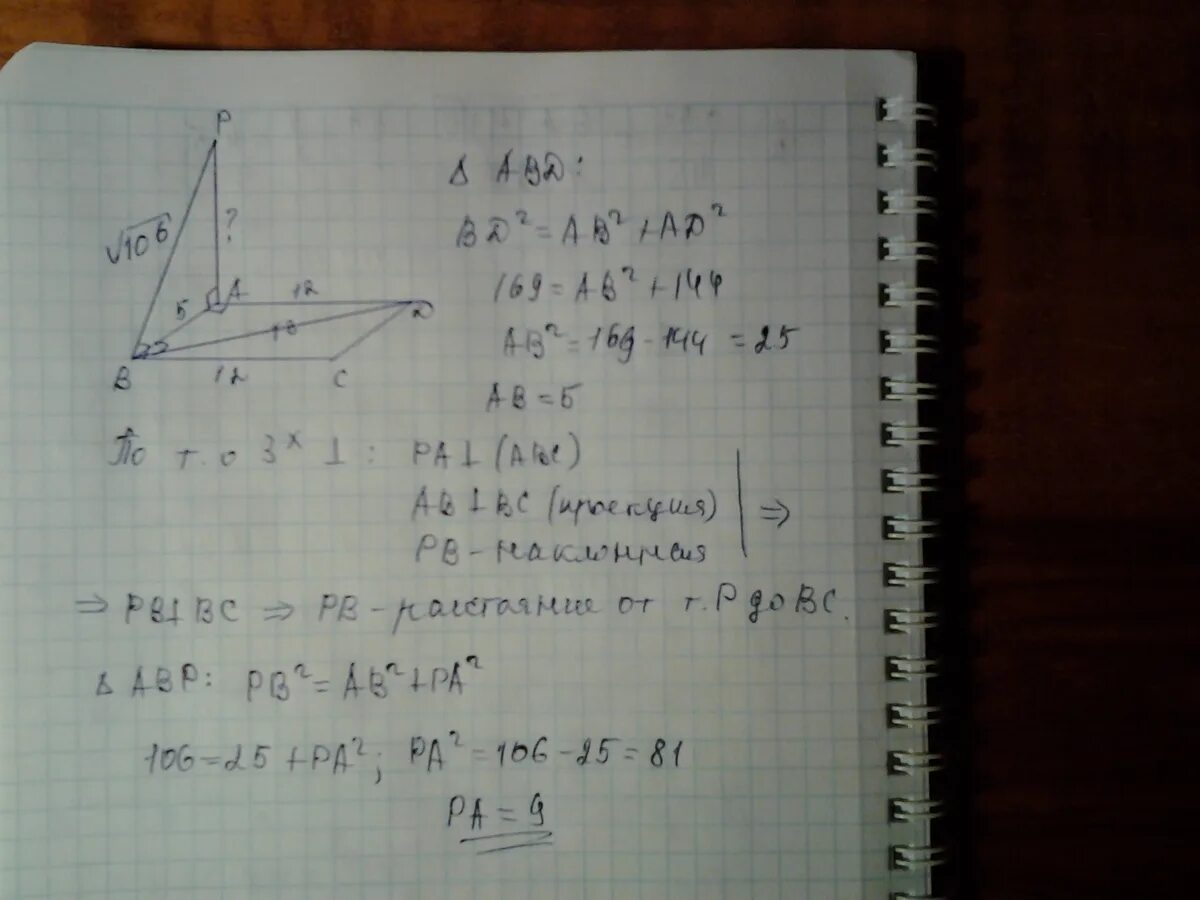 P
√106
?
5
A
12
13
D
B
12
C
Δ ABD:
BD² = AB² + AD²
169 = AB² + 144
AB² = 169 - 144 = 25
AB = 5
По т. о 3ˣ ⊥ : PA ⊥ (ABC)
AB ⊥ BC (проекция)
PB - наклонная
⇒
⇒ PB ⊥ BC ⇒ PB - расстояние от т. P до BC.
Δ ABP: PB² = AB² + PA²
106 = 25 + PA² ; PA² = 106 - 25 = 81
PA = 9